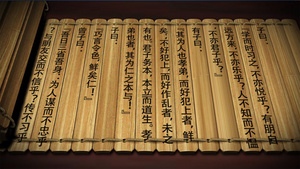 子曰：
『學而時習之，不亦悅乎？有朋自
遠方來，不亦樂乎？人不知而不慍，
不亦君子乎？』
有子曰：
『其為人也孝弟，而好犯上者，鮮
矣。不好犯上，而好作亂者，未之
有也。君子務本，本立而道生。孝
弟也者，其為仁之本與！』
子曰：
『巧言令色，鮮矣仁！』
曾子曰：
『吾日三省吾身：為人謀而不忠乎
？與朋友交而不信乎？傳不習乎